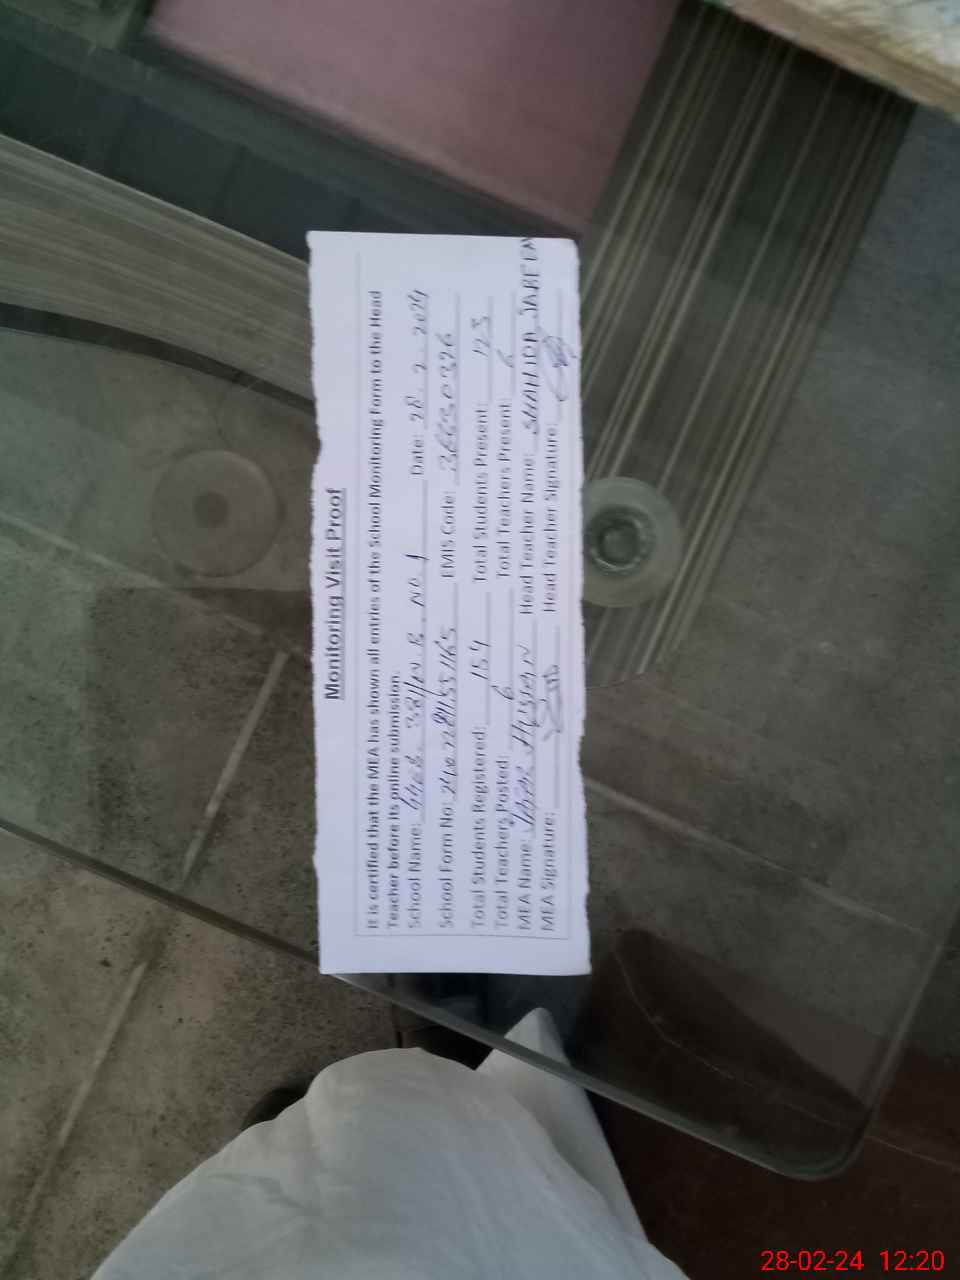 Monitoring Visit Proof
It is certified that the MEA has shown all entries of the School Monitoring Form to the Head
Teacher before its online submission.
School Name: 381/W.B. NO. 1 Date: 28.2.2024
School Form No: EMIS Code:
Total Students Registered: 154 Total Students Present: 123
Total Teachers Posted: 6 Total Teachers Present: 6
MEA Name: Head Teacher Name:
MEA Signature: Head Teacher Signature:
28-02-24 12:20